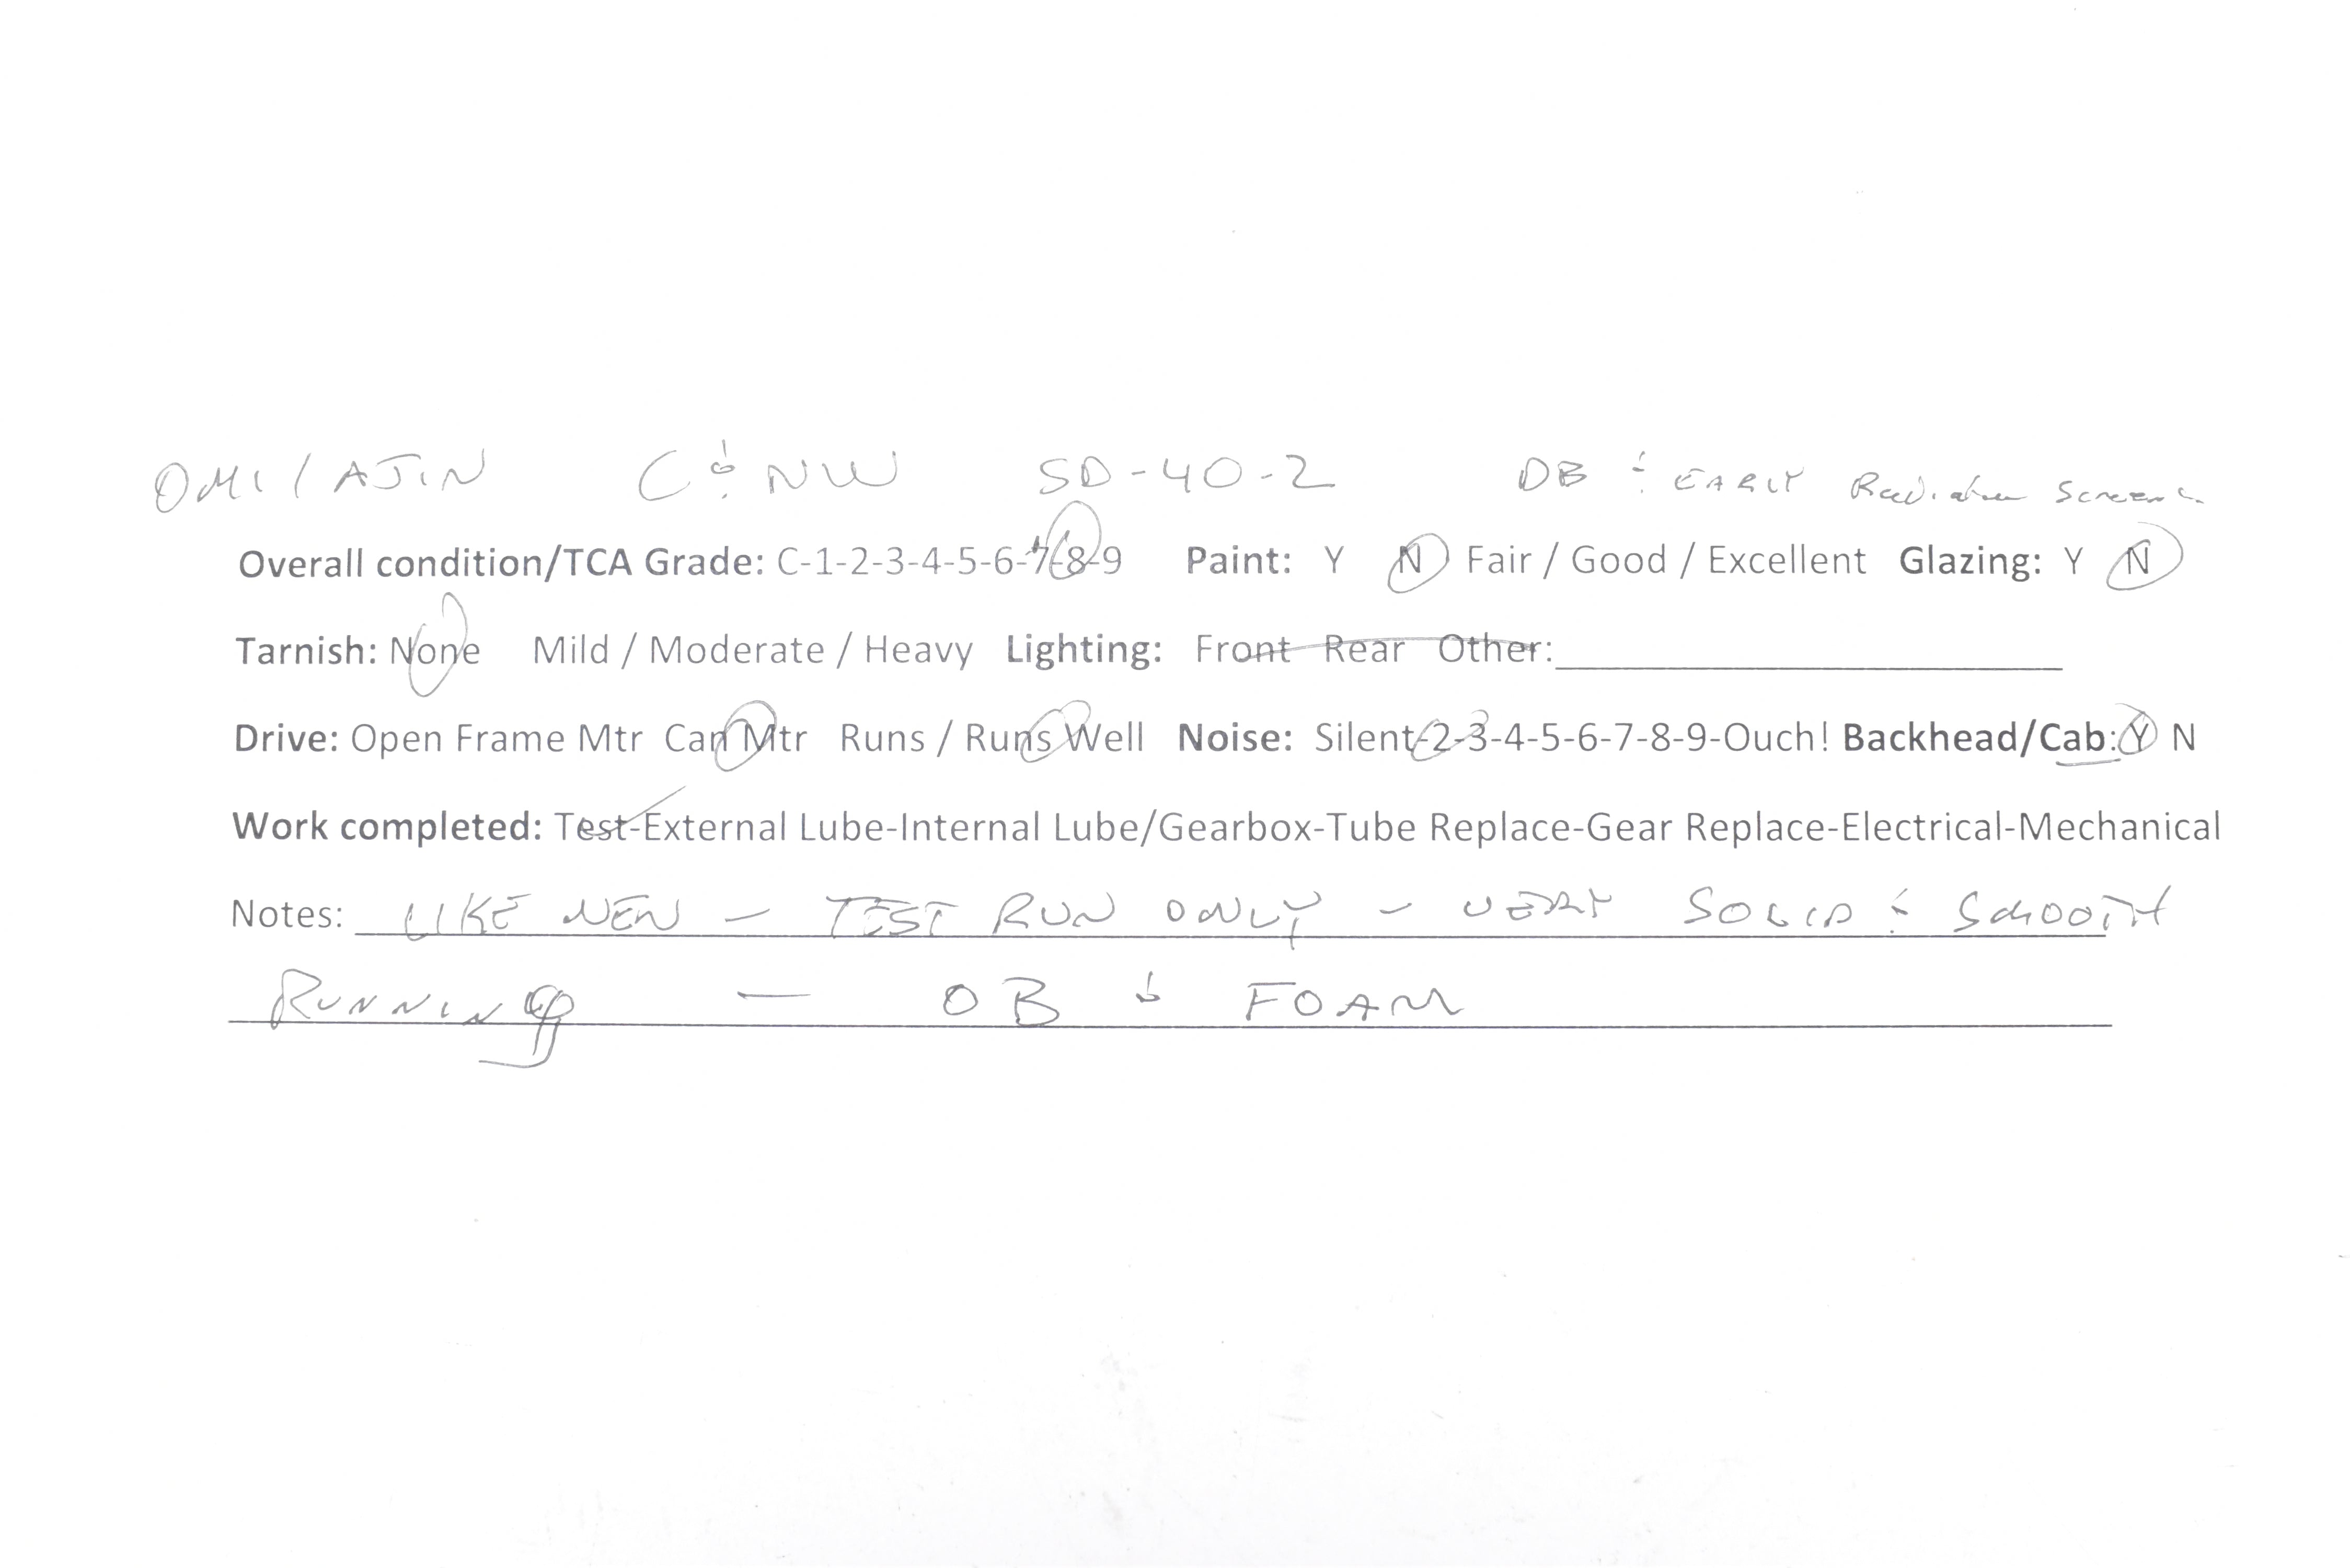 OMI/AJIN C & NW SD-40-2 DB & EARLY Radiator Screens
Overall condition/TCA Grade: C-1-2-3-4-5-6-7-8-9 Paint: Y N Fair / Good / Excellent Glazing: Y N
Tarnish: None Mild / Moderate / Heavy Lighting: Front Rear Other:
Drive: Open Frame Mtr Can Mtr Runs / Runs Well Noise: Silent-2-3-4-5-6-7-8-9-Ouch! Backhead/Cab: Y N
Work completed: Test-External Lube-Internal Lube/Gearbox-Tube Replace-Gear Replace-Electrical-Mechanical
Notes: LIKE NEW - TEST RUN ONLY - VERY SOLID & SMOOTH
RUNNING - OB & FOAM